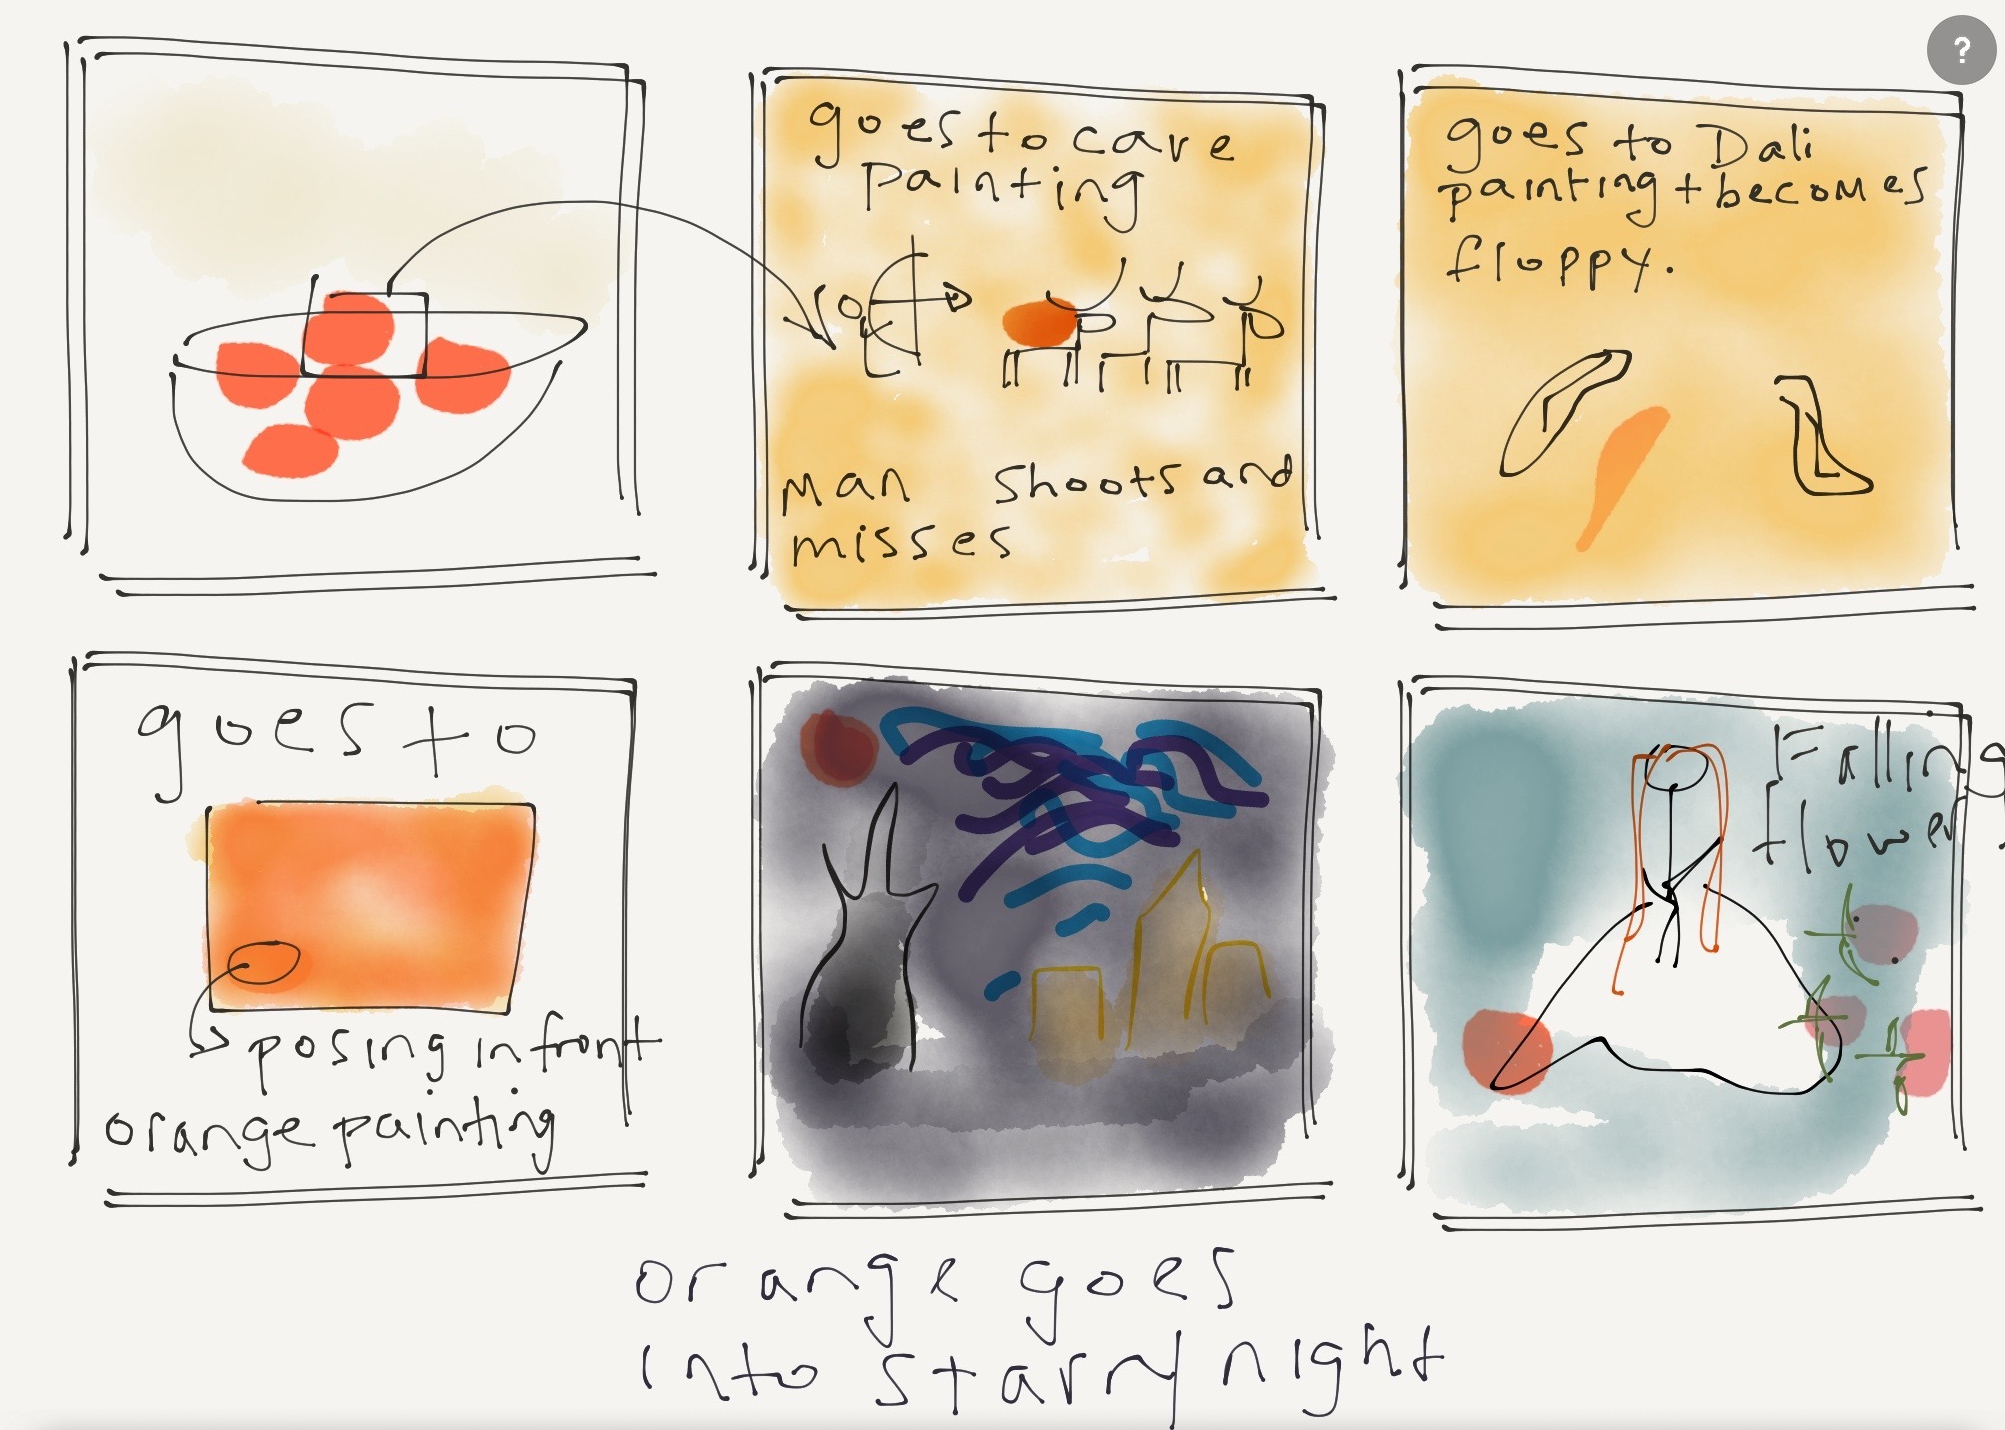 goes to cave
painting
man shoots and
misses
goes to Dali
painting + becomes
floppy.
goes to
posing in front
orange painting
Falling
flower
orange goes
into starry night
?